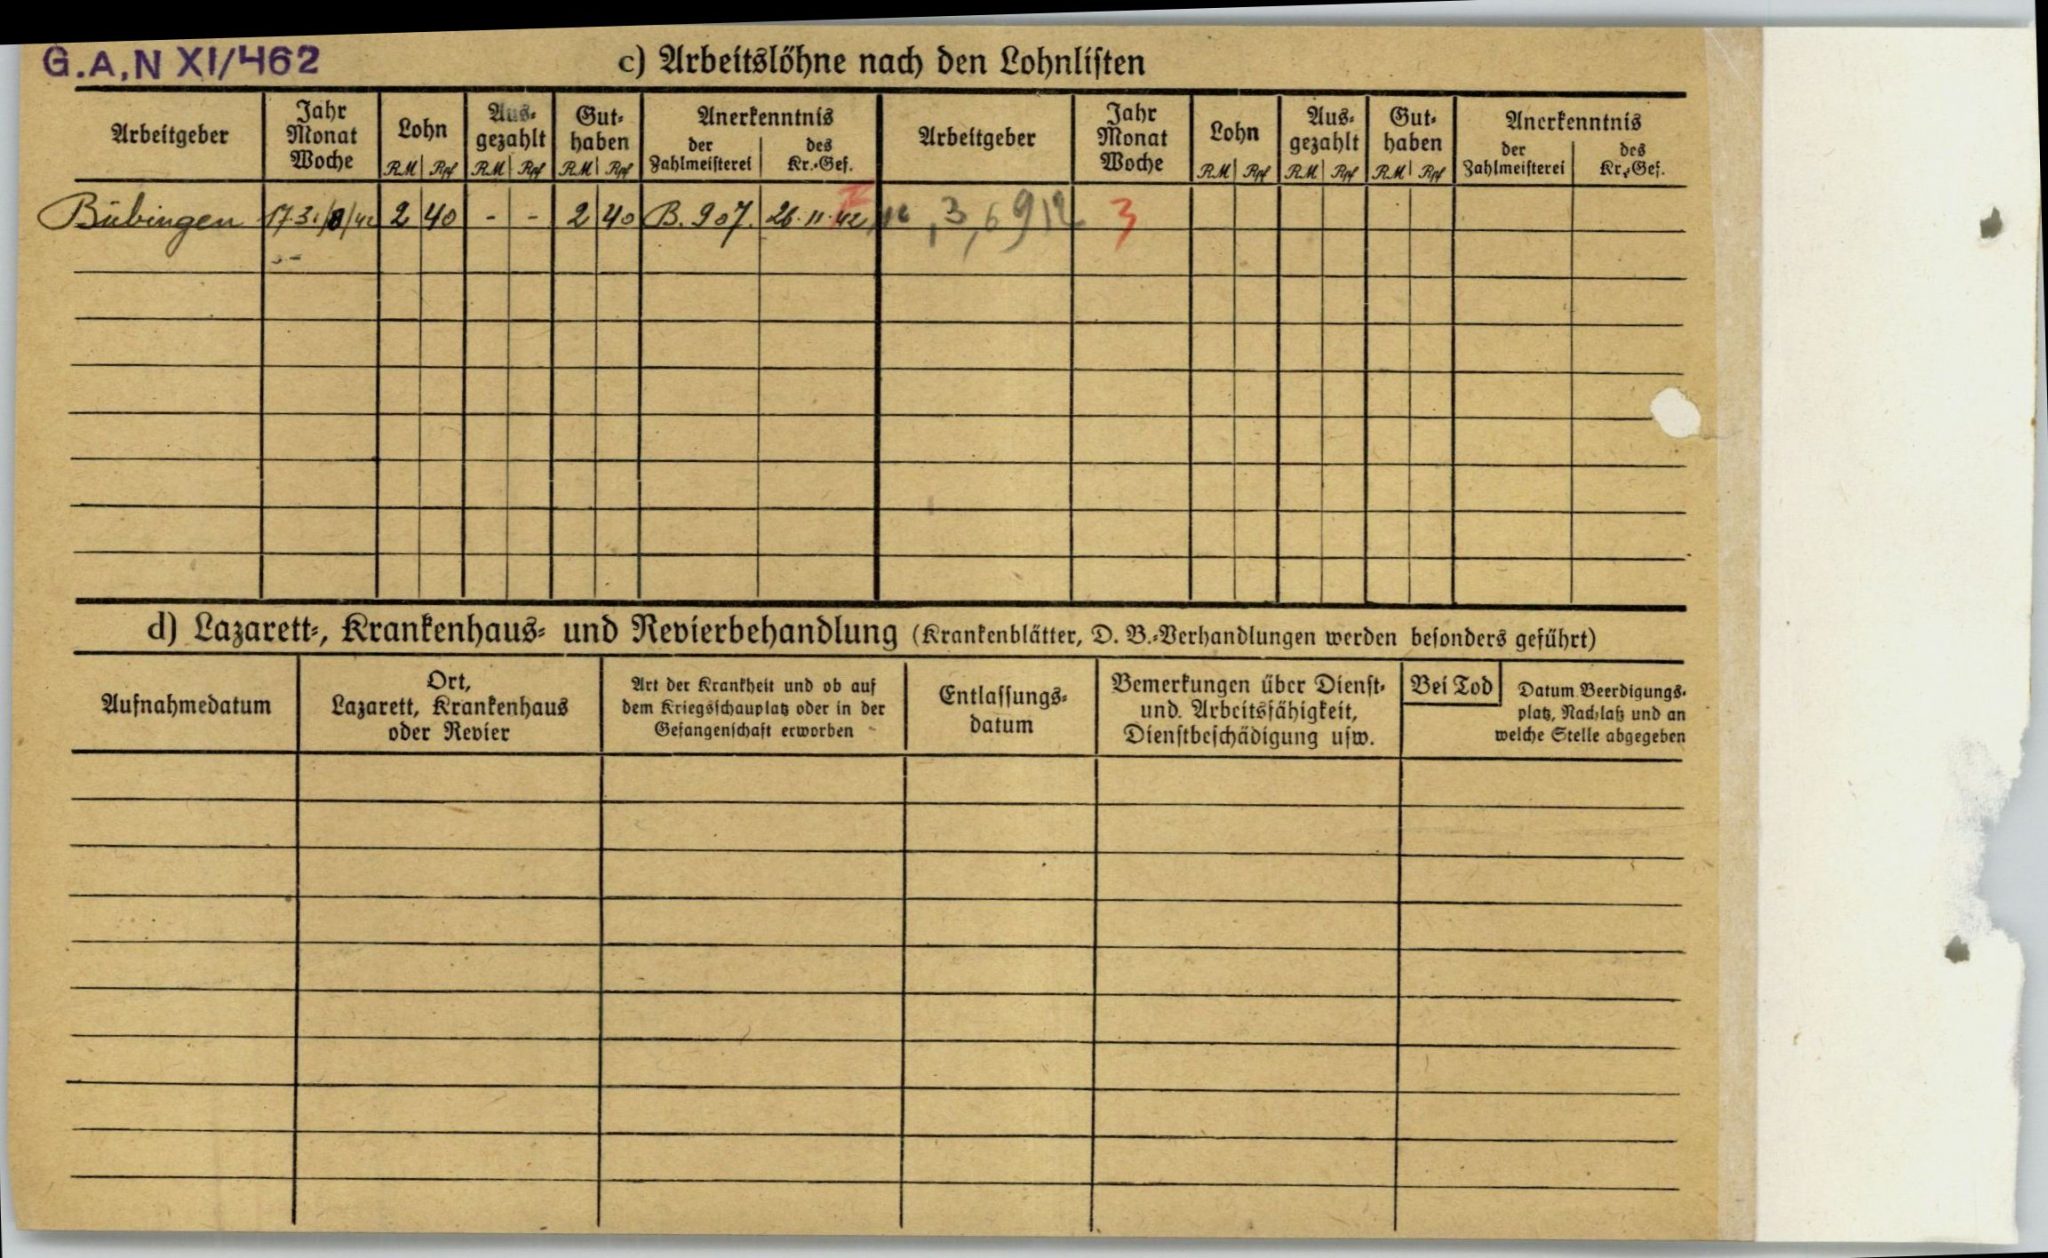 G.A,N XI/462
c) Arbeitslöhne nach den Lohnlisten
Arbeitgeber Jahr Monat Woche Lohn RM Rpf Aus- gezahlt RM Rpf Gut- haben RM Rpf Anerkenntnis der Zahlmeisterei des Kr.-Gef. Arbeitgeber Jahr Monat Woche Lohn RM Rpf Aus- gezahlt RM Rpf Gut- haben RM Rpf Anerkenntnis der Zahlmeisterei des Kr.-Gef.
Bübingen 2 40 - - 2 40 B. 907. 26.11.42 3
d) Lazarett-, Krankenhaus- und Revierbehandlung (Krankenblätter, D. B.-Verhandlungen werden besonders geführt)
Aufnahmedatum Ort, Lazarett, Krankenhaus oder Revier Art der Krankheit und ob auf dem Kriegsschauplatz oder in der Gefangenschaft erworben Entlassungs- datum Bemerkungen über Dienst- und. Arbeitsfähigkeit, Dienstbeschädigung usw. Bei Tod Datum Beerdigungs- platz, Nachlaß und an welche Stelle abgegeben